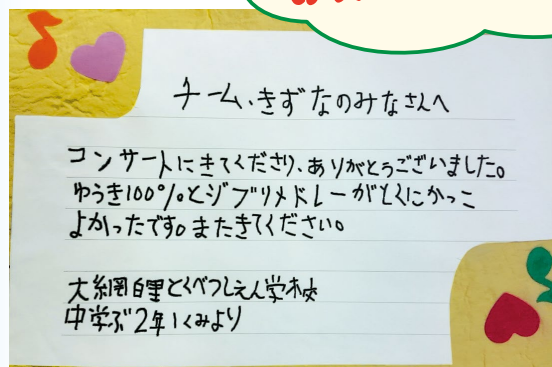 チーム、きずなのみなさんへ
コンサートにきてくださり、ありがとうございました。
ゆうき100%とジブリメドレーがとくにかっこ
よかったです。またきてください。
大網白里とくべつしえん学校
中学ぶ2年1くみより